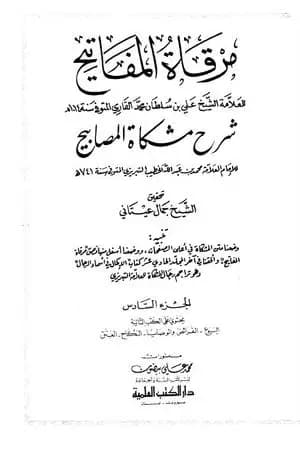 مرقاة المفاتيح
للعلامة الشيخ علي بن سلطان محمد القاري المتوفى سنة ١٠١٤هـ
شرح مشكاة المصابيح
للإمام العلامة محمد بن عبد الله الخطيب التبريزي المتوفى سنة ٧٤١هـ
تحقيق
الشيخ جمال عيتاني
تنبيه:
وضعنا متن المشكاة في أعلى الصفحات، ووضعنا أسفل منها نص مرقاة
المفاتيح، وألحقنا في آخر المجلد الحادي عشر كتاب الإكمال في أسماء الرجال
وهو تراجم رجال المشكاة للعلامة التبريزي
الجزء السادس
يحتوي على الكتب التالية
البيوع - الفرائض والوصايا - النكاح - العتق
منشورات
محمد علي بيضون
دار الكتب العلمية